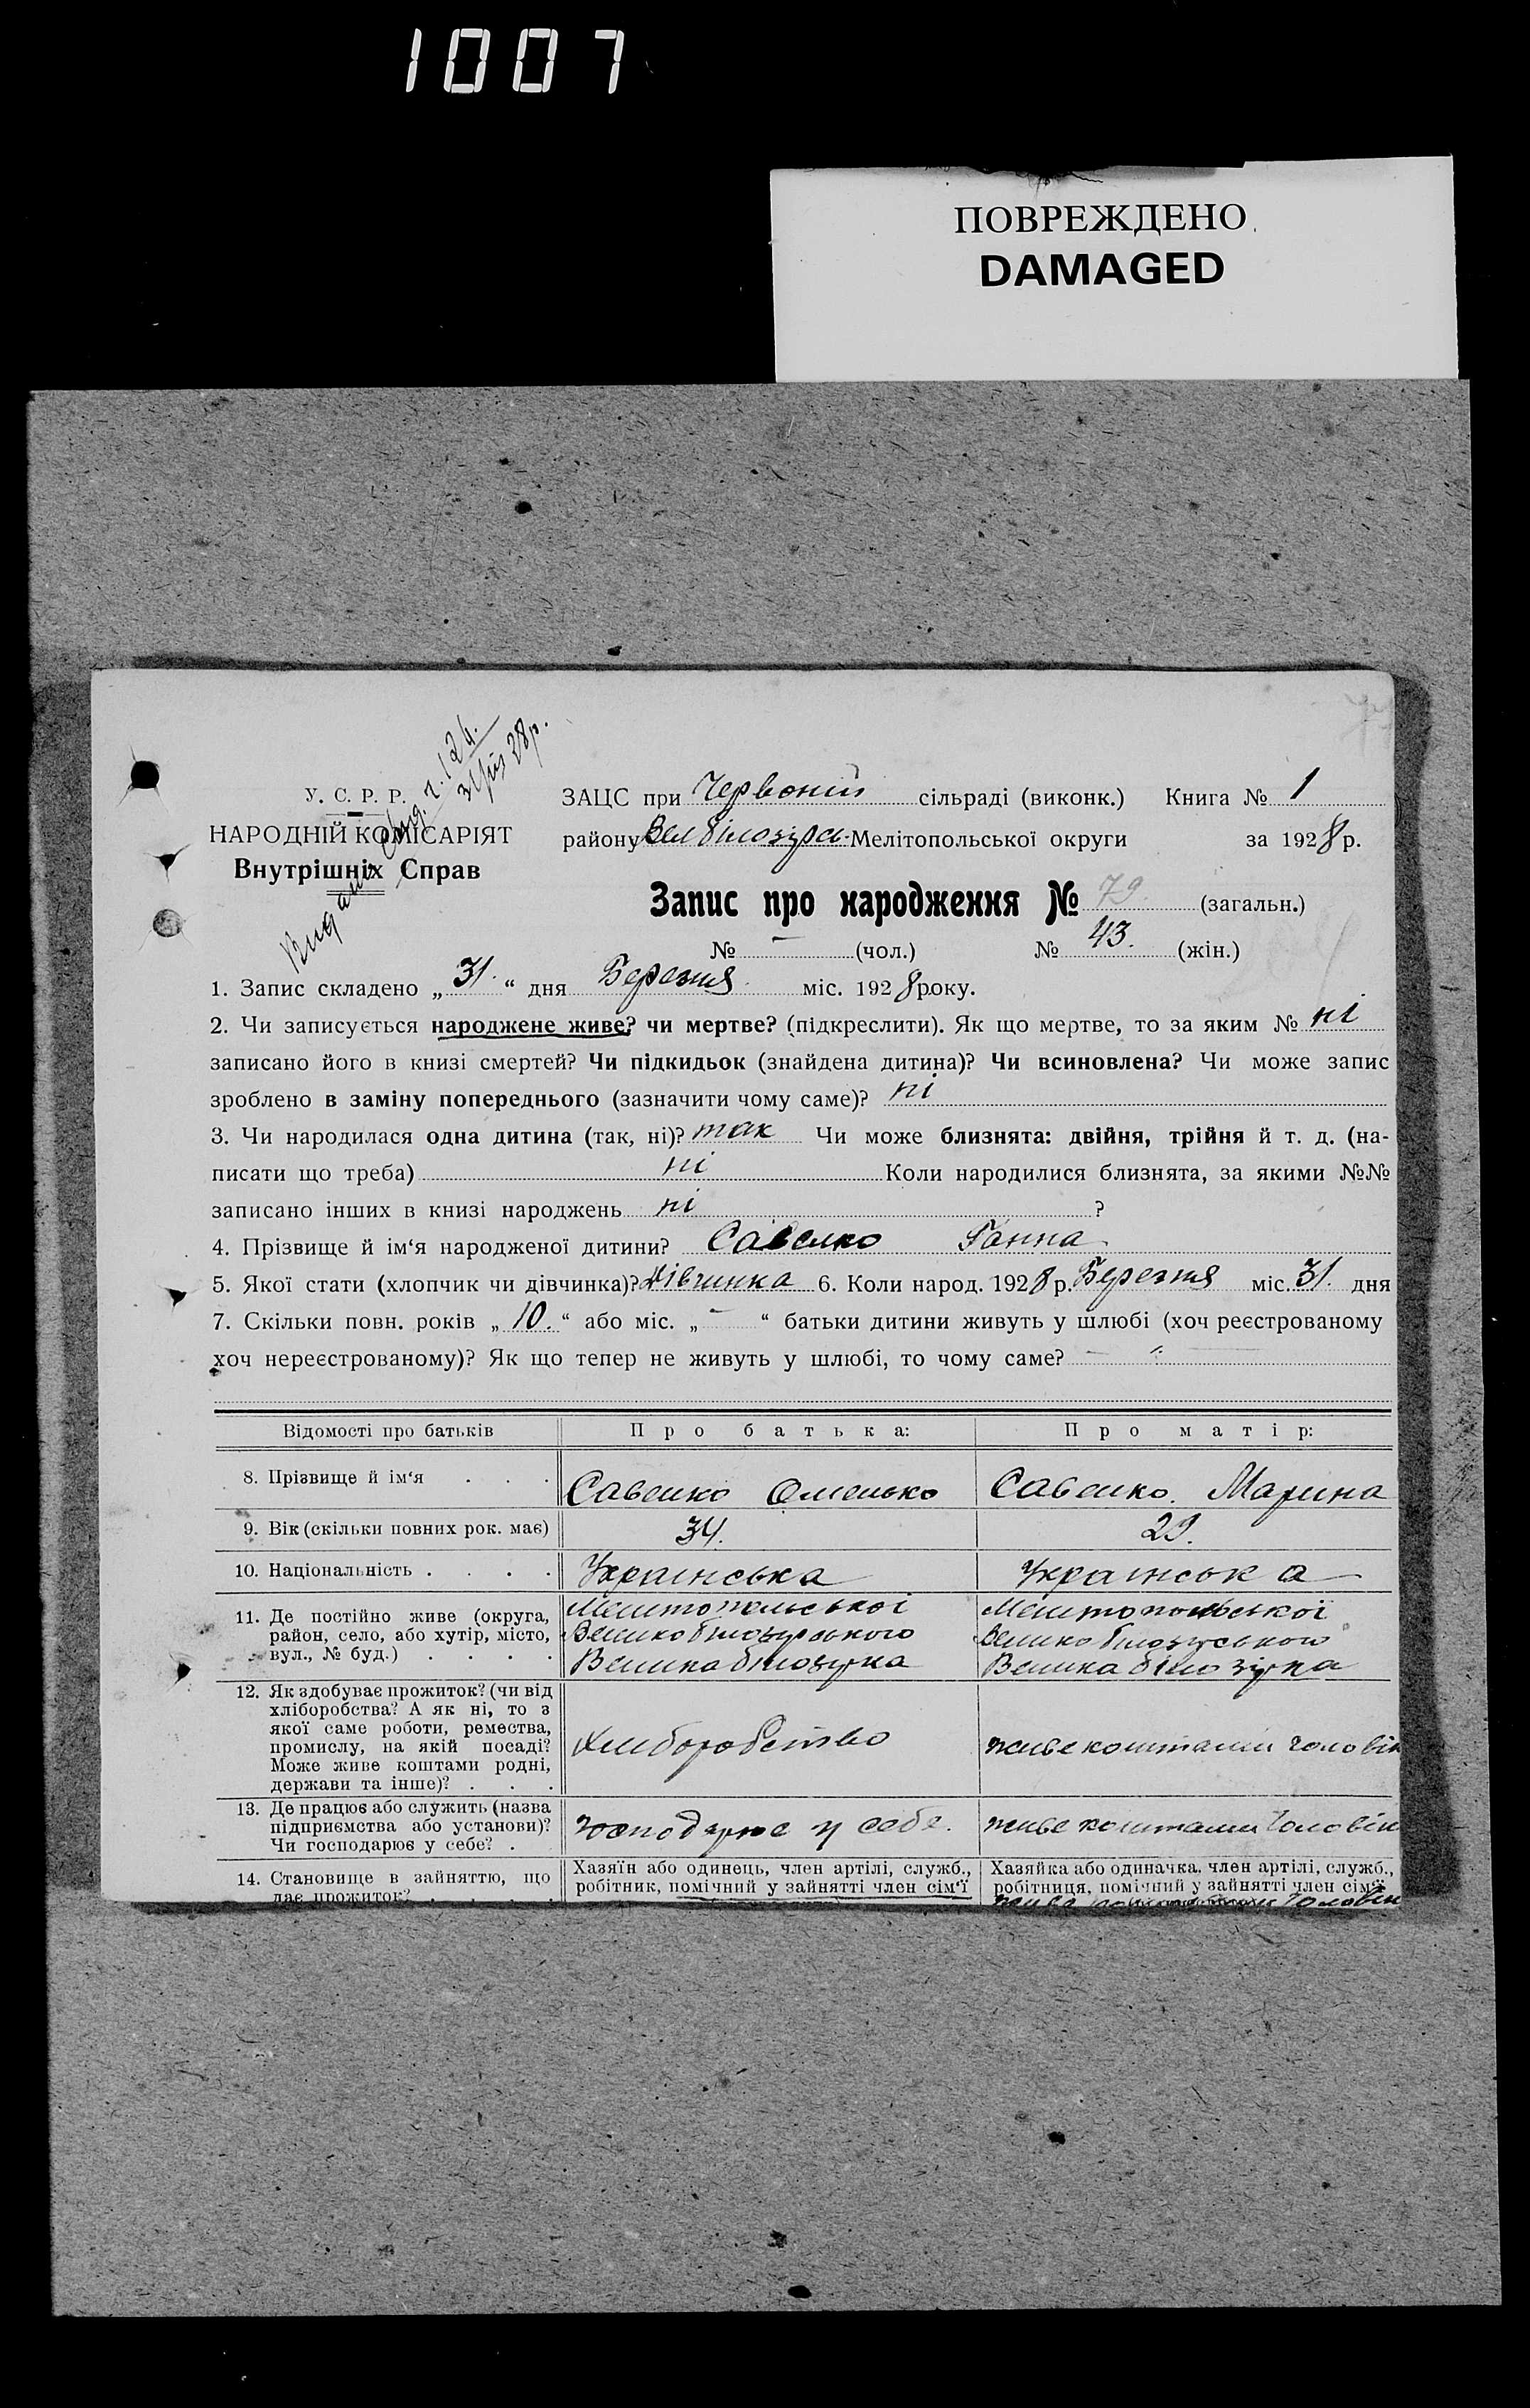 1007
ПОВРЕЖДЕНО
DAMAGED
У. С. Р. Р.
НАРОДНІЙ КОМІСАРІЯТ
Внутрішніх Справ
ЗАЦС при Червоній сільраді (виконк.) Книга № 1
району Вел білозірсь Мелітопольської округи за 1928 р.
Запис про народження № 79 (загальн.)
№ — (чол.) № 43. (жін.)
1. Запис складено „31.“ дня Березня міс. 1928 року.
2. Чи записується народжене живе? чи мертве? (підкреслити). Як що мертве, то за яким № ні
записано його в книзі смертей? Чи підкидьок (знайдена дитина)? Чи всиновлена? Чи може запис
зроблено в заміну попереднього (зазначити чому саме)? ні
3. Чи народилася одна дитина (так, ні)? так Чи може близнята: двійня, трійня й т. д. (на-
писати що треба) ні Коли народилися близнята, за якими №№
записано інших в книзі народжень ні ?
4. Прізвище й ім‘я народженої дитини? Савенко Ганна
5. Якої стати (хлопчик чи дівчинка)? Дівчинка 6. Коли народ. 1928 р. Березня міс. 31. дня
7. Скільки повн. років „10.“ або міс. „—“ батьки дитини живуть у шлюбі (хоч реєстрованому
хоч нереєстрованому)? Як що тепер не живуть у шлюбі, то чому саме? —
Відомості про батьків Про батька: Про матір:
8. Прізвище й ім‘я . . . Савенко Омелько Савенко. Марина
9. Вік (скільки повних рок. має) 34. 29.
10. Національність . . . . Українська Українська
11. Де постійно живе (округа, Мелітопольської Мелітопольської
район, село, або хутір, місто, Великобілозірського Великобілозірського
вул., № буд.) . . . . Велика білозірка Велика білозірка
12. Як здобуває прожиток? (чи від
хліборобства? А як ні, то з
якої саме роботи, ремества,
промислу, на якій посаді? Хліборобство живе коштами чоловік
Може живе коштами родні,
держави та інше)? . . .
13. Де працює або служить (назва
підприємства або установи)? господарює у себе. живе коштами чоловік
Чи господарює у себе? .
14. Становище в зайняттю, що Хазяїн або одинець, член артілі, служб., Хазяйка або одиначка, член артілі, служб.,
дає прожиток? . . . . робітник, помічний у зайнятті член сім‘ї робітниця, помічний у зайнятті член сім‘ї
живе коштами чоловік